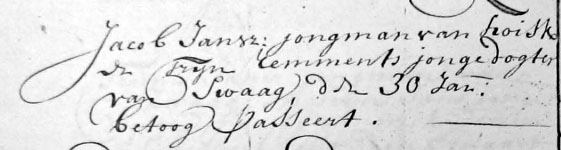 Jacob Jansz: jongman van Twisk
en Trijn Lemments jonge dogter
van Swaag, den 30 Jan:
betoog Passeert.